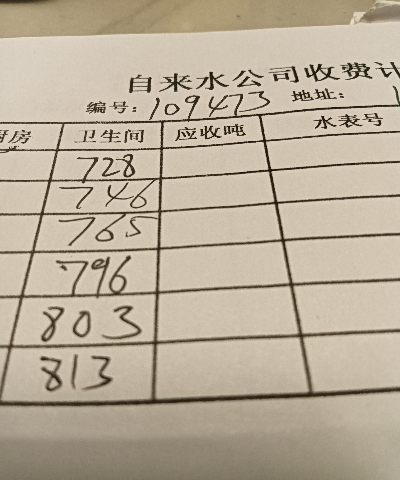 自来水公司收费计
编号：109473 地址：
厨房 卫生间 应收吨 水表号
728
746
765
796
803
813